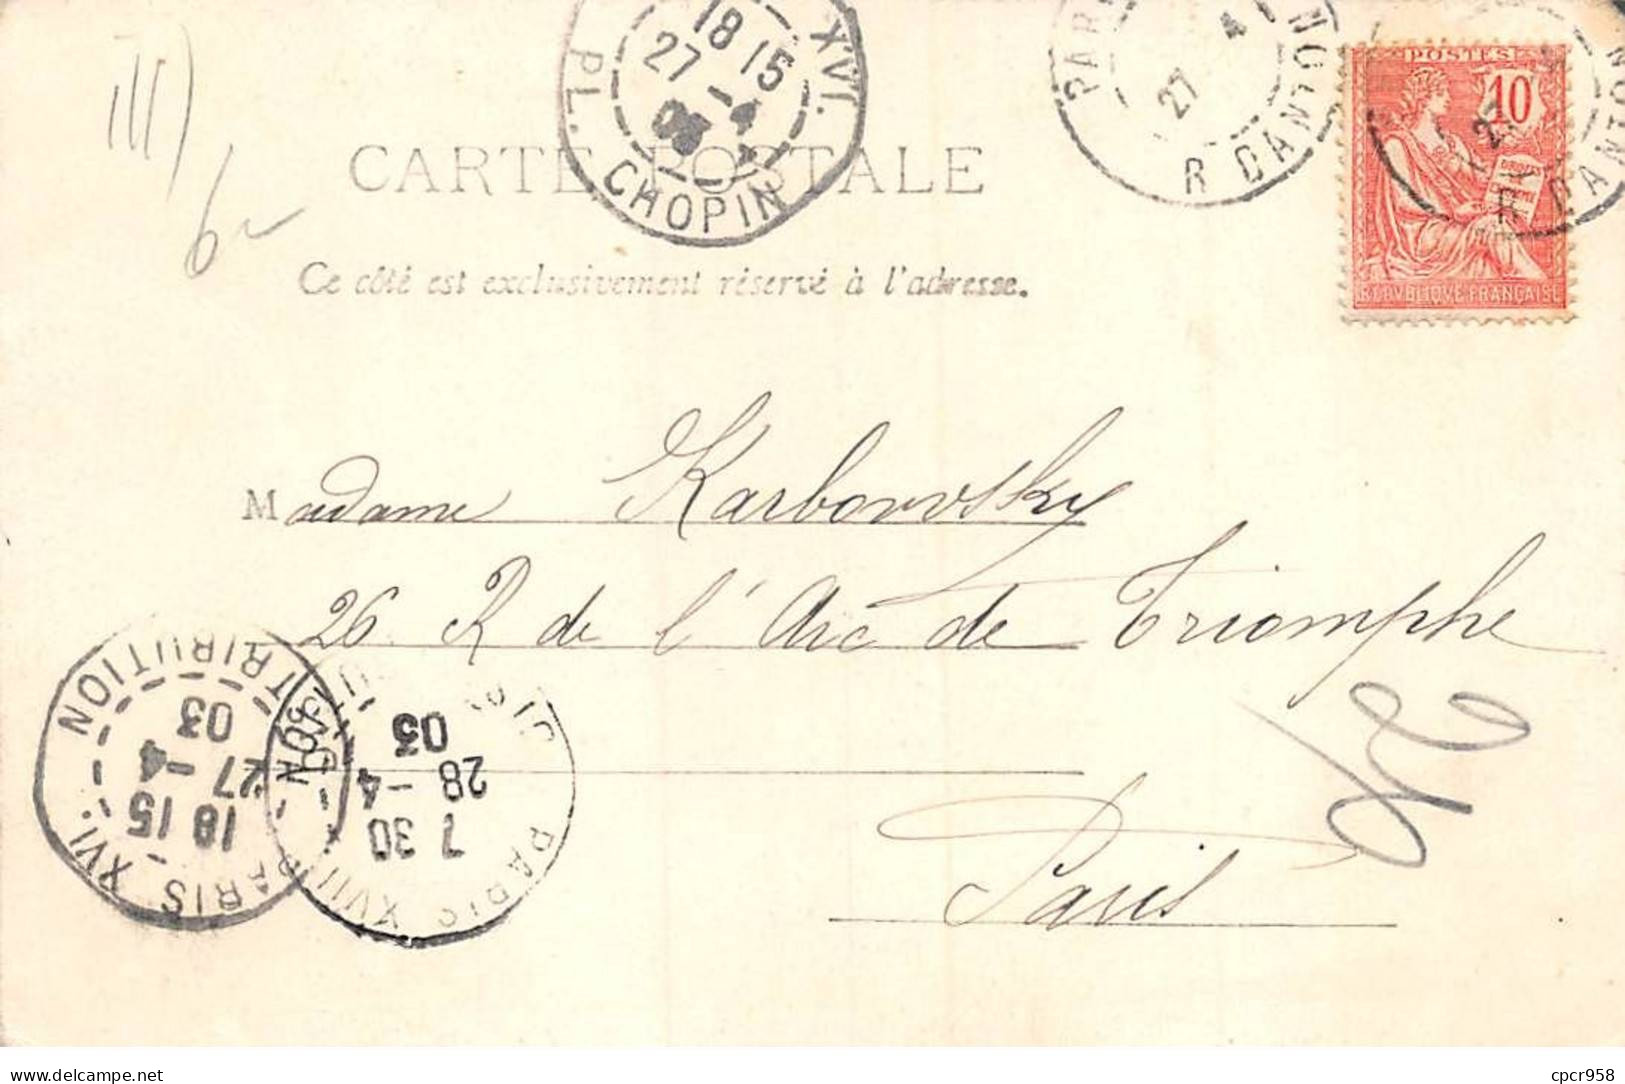 XVI.
18 15
27 -4
03
PL. CHOPIN
PAR
27 4
R DANTON
POSTES
10
R DANTO
REPVBLIQVE FRANÇAISE
III)
6
CARTE POSTALE
Ce côté est exclusivement réservé à l'adresse.
Madame Karbowsky
26 R de l'Arc de Triomphe
Paris
PARIS XVI. DISTRIBUTION
18 15
27 -4
03
PARIS XVII
7 30
28 -4
03
cpcr958